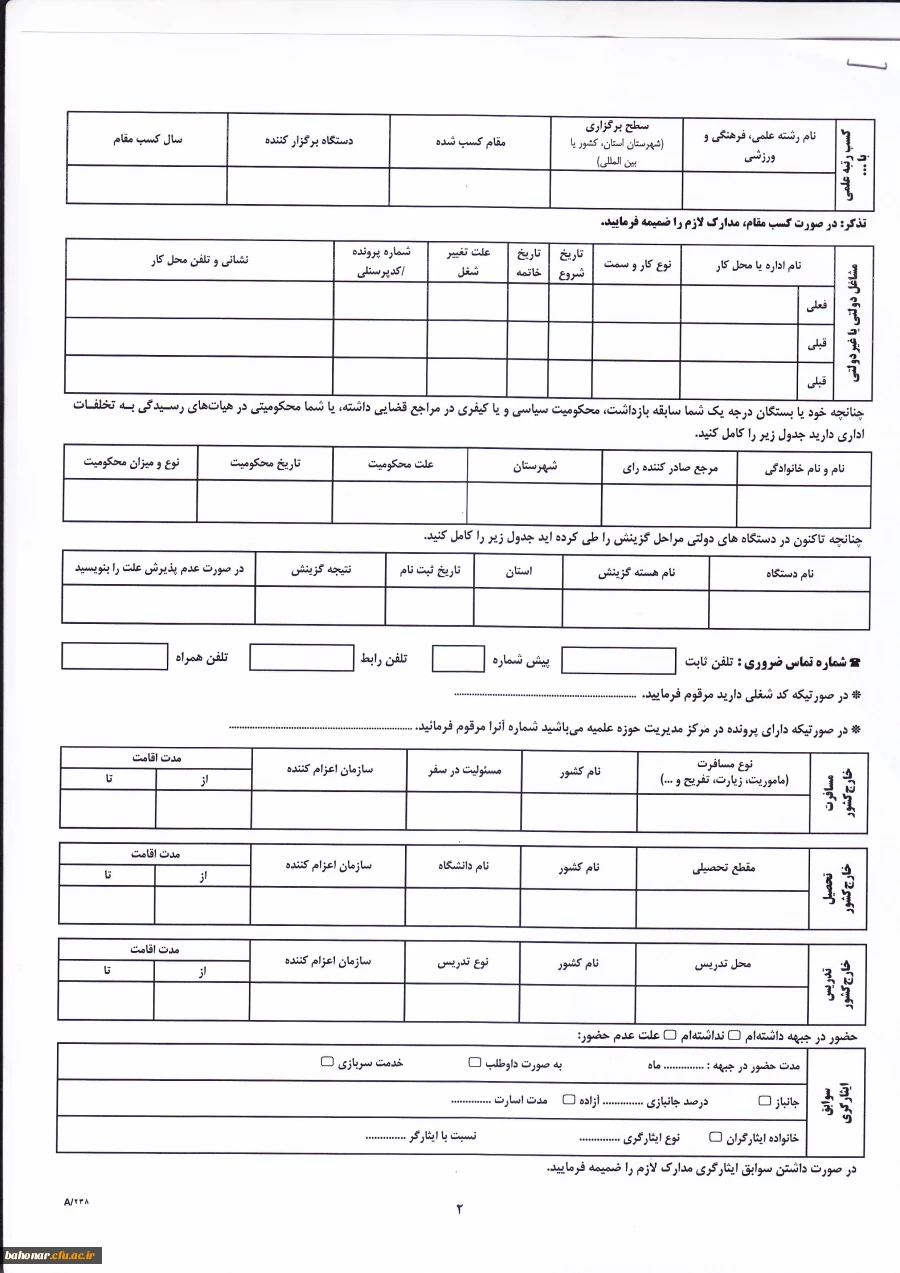 کسب رتبه علمی
یا ...
نام رشته علمی، فرهنگی و
ورزشی
سطح برگزاری
(شهرستان استان، کشور یا
بین المللی)
مقام کسب شده
دستگاه برگزار کننده
سال کسب مقام
تذکر: در صورت کسب مقام، مدارک لازم را ضمیمه فرمایید.
مشاغل دولتی یا غیردولتی
نام اداره یا محل کار
نوع کار و سمت
تاریخ
شروع
تاریخ
خاتمه
علت تغییر
شغل
شماره پرونده
/کدپرسنلی
نشانی و تلفن محل کار
فعلی
قبلی
قبلی
چنانچه خود یا بستگان درجه یک شما سابقه بازداشت، محکومیت سیاسی و یا کیفری در مراجع قضایی داشته، یا شما محکومیتی در هیات‌های رسیدگی به تخلفات
اداری دارید جدول زیر را کامل کنید.
نام و نام خانوادگی
مرجع صادر کننده رای
شهرستان
علت محکومیت
تاریخ محکومیت
نوع و میزان محکومیت
چنانچه تاکنون در دستگاه های دولتی مراحل گزینش را طی کرده اید جدول زیر را کامل کنید.
نام دستگاه
نام هسته گزینش
استان
تاریخ ثبت نام
نتیجه گزینش
در صورت عدم پذیرش علت را بنویسید
☎ شماره تماس ضروری : تلفن ثابت پیش شماره تلفن رابط تلفن همراه
❊ در صورتیکه کد شغلی دارید مرقوم فرمایید. ..............................
❊ در صورتیکه دارای پرونده در مرکز مدیریت حوزه علمیه می‌باشید شماره آنرا مرقوم فرمائید. ..............................
مسافرت
خارج کشور
نوع مسافرت
(ماموریت، زیارت، تفریح و ...)
نام کشور
مسئولیت در سفر
سازمان اعزام کننده
مدت اقامت
از
تا
تحصیل
خارج کشور
مقطع تحصیلی
نام کشور
نام دانشگاه
سازمان اعزام کننده
مدت اقامت
از
تا
تدریس
خارج کشور
محل تدریس
نام کشور
نوع تدریس
سازمان اعزام کننده
مدت اقامت
از
تا
حضور در جبهه داشته‌ام ▢ نداشته‌ام ▢ علت عدم حضور:
سوابق
ایثارگری
مدت حضور در جبهه : .............. ماه به صورت داوطلب ▢ خدمت سربازی ▢
جانباز ▢ درصد جانبازی .............. آزاده ▢ مدت اسارت ..............
خانواده ایثارگران ▢ نوع ایثارگری .............. نسبت با ایثارگر ..............
در صورت داشتن سوابق ایثارگری مدارک لازم را ضمیمه فرمایید.
A/۲۳۸
۲
bahonar.cfu.ac.ir